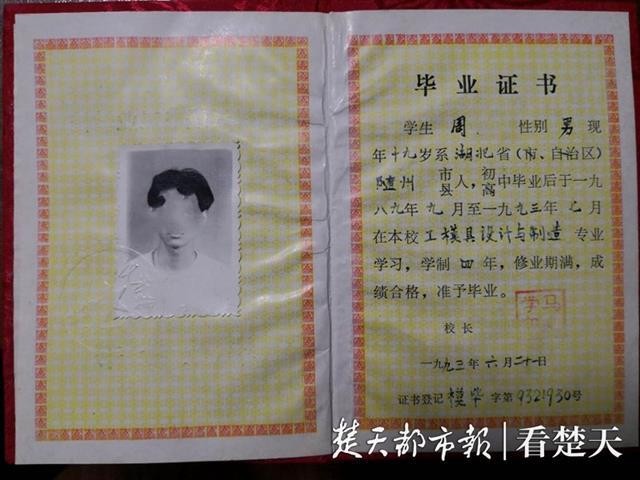 毕业证书
学生 周 性别 男 现
年十九岁系湖北省(市、自治区)
随州 市县人,初高中毕业后于一九
八九年九月至一九九三年七月
在本校工模具设计与制造专业
学习,学制四年,修业期满,成
绩合格,准予毕业。
校长
一九九三年六月二十一日
证书登记 模毕 字第9321930号
楚天都市報|看楚天